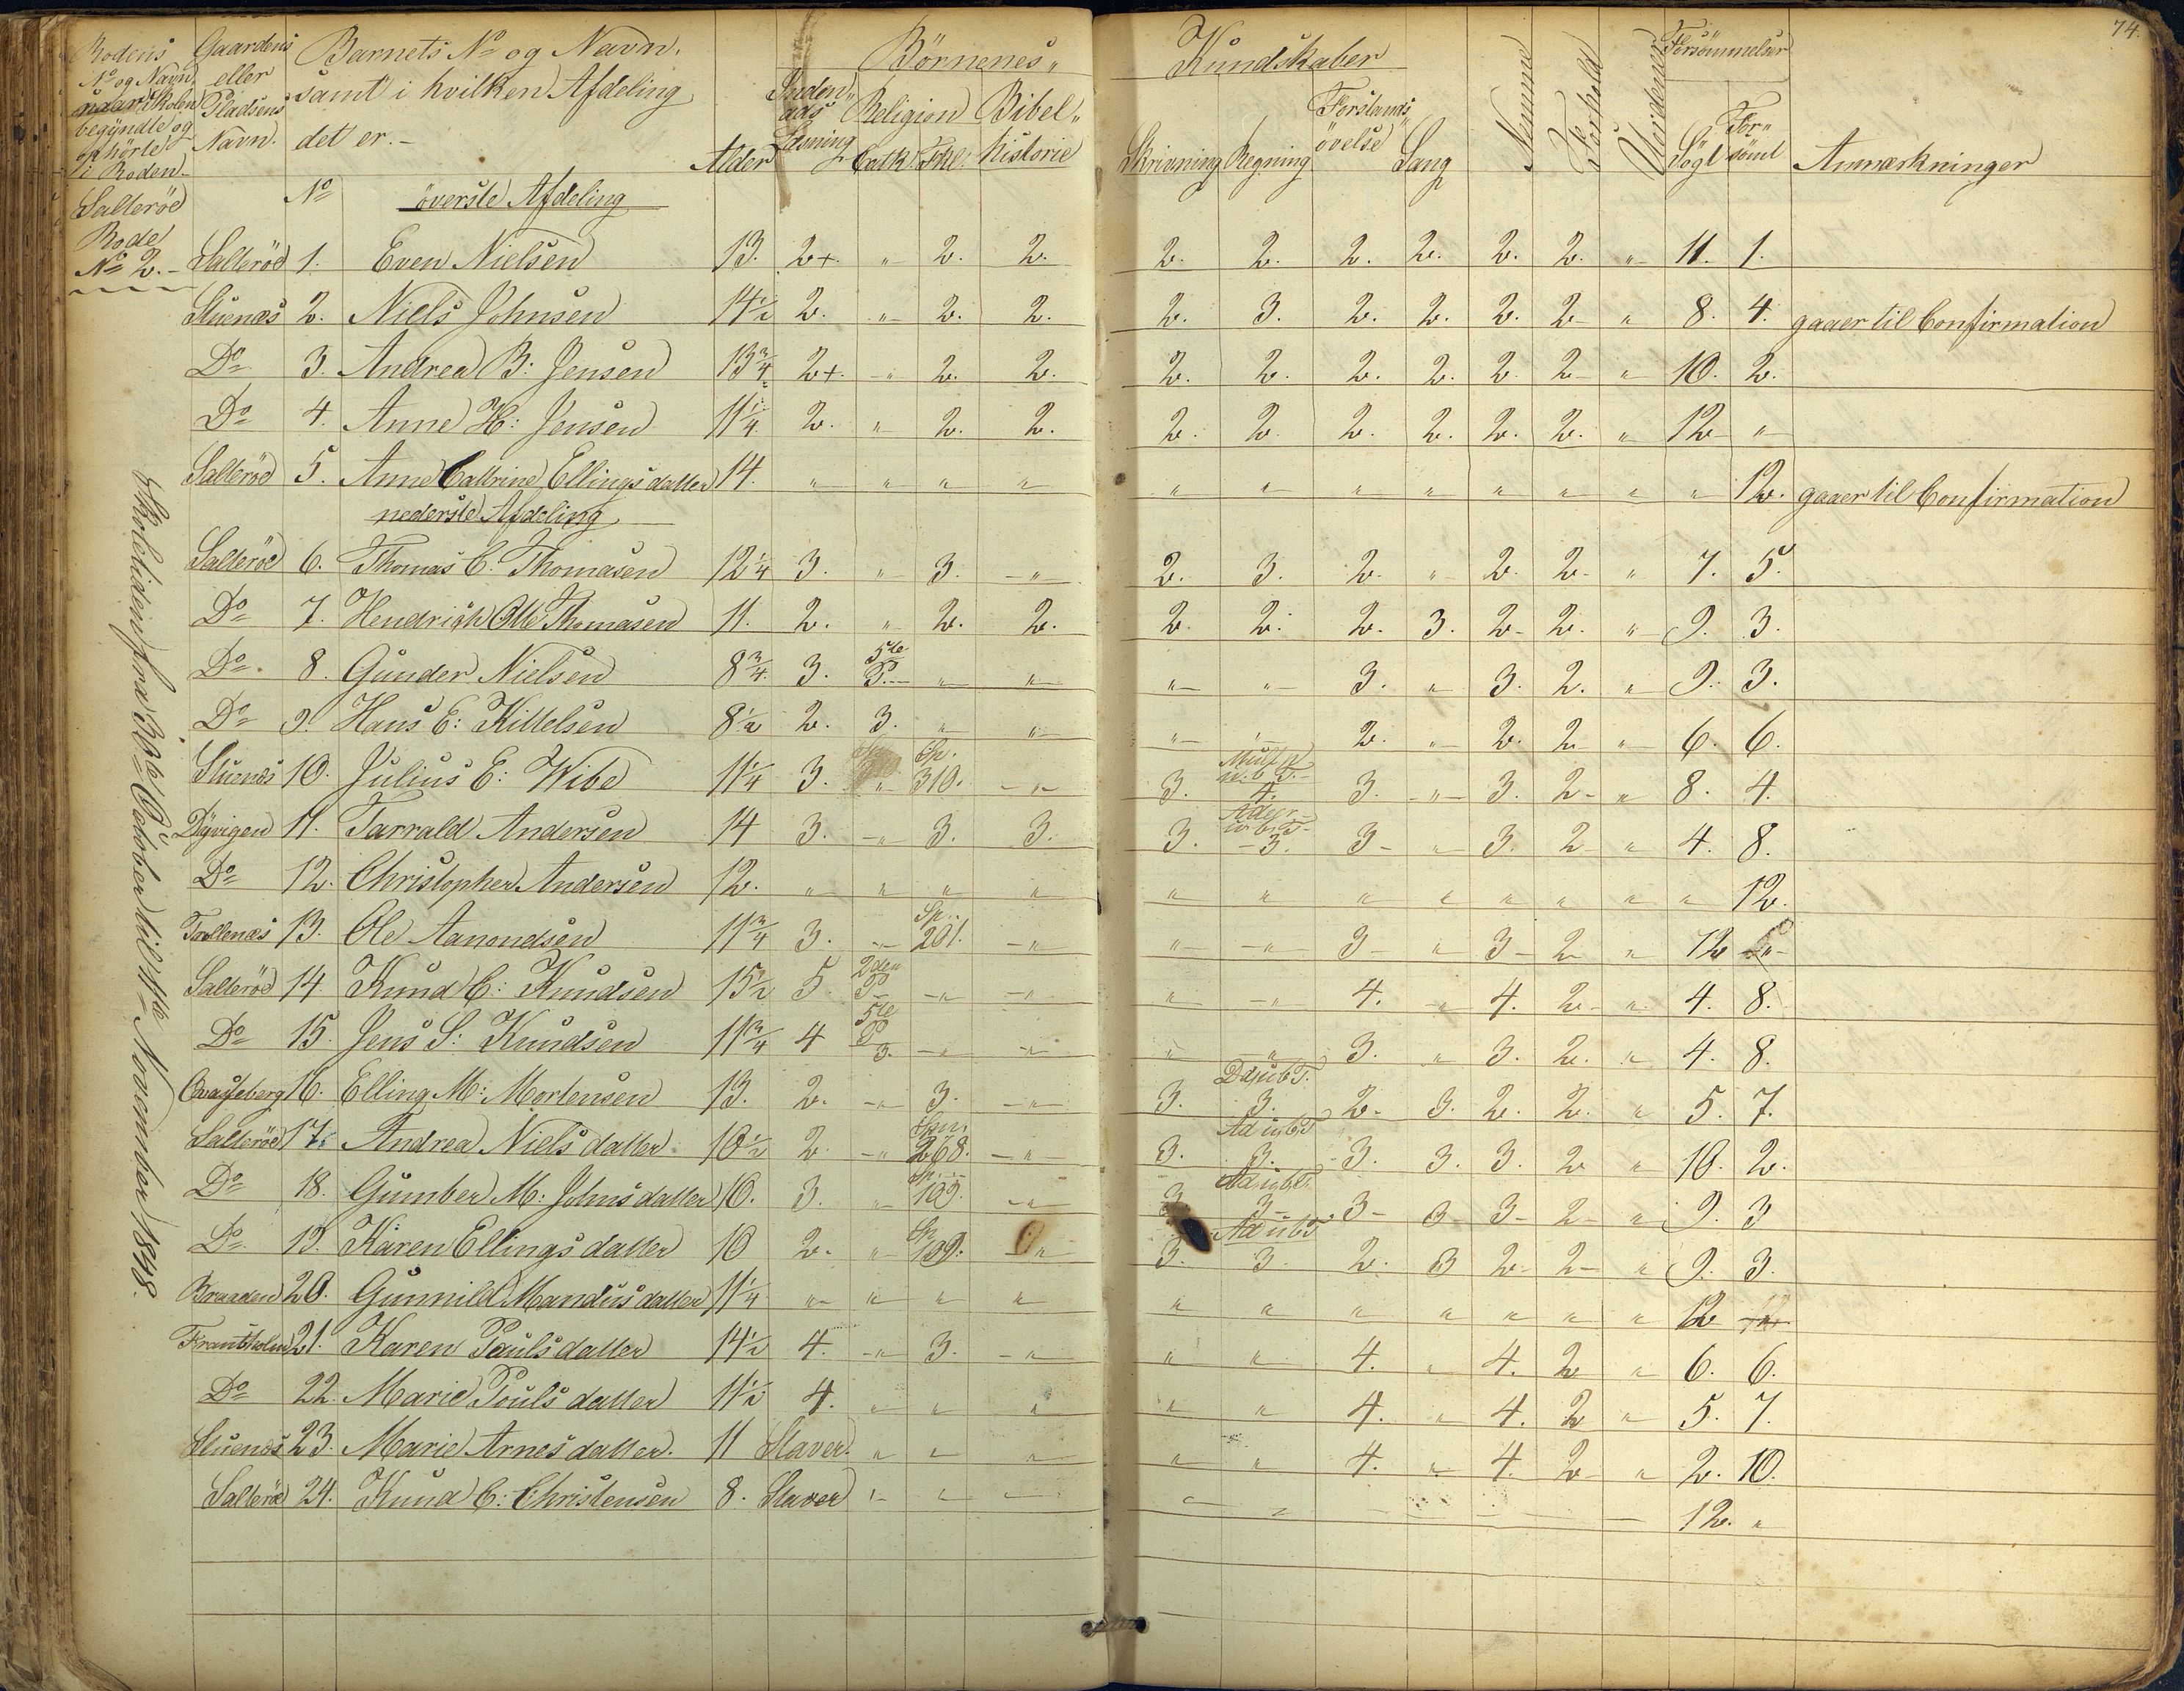 74.
Rodens Gaardens Barnets No og Navn. Börnenes„ Kundskaber Nemme Forhold Uordener Forsömmelser
No og Navn eller samt i hvilken Afdeling Inden„ Religion Bibel„ Forstands„ For„
naar Skolen Pladsens det er.- ads historie Skrivning Regning övelse Sang Sögt sömt Anmærkninger
begyndte og Navn. Alder Læsning Catk. Fkl.
ophörte
i Roden.-
Salteröe No överste Afdeling
Rode
No 2.- Salteröe 1. Even Nielsen 13. 2+. „ 2. 2. 2. 2. 2. 2. 2. 2. „ 11. 1.
Stuenæs 2. Niels Johnsen 14½ 2. „ 2. 2. 2. 3. 2. 2. 2. 2 „ 8. 4. gaaer til Confirmation
Do 3. Andrea B: Jensen 13¾ 2+. „ 2. 2. 2. 2. 2. 2. 2. 2 „ 10. 2.
Do 4. Anne H: Jensen 11¼ 2. „ 2. 2. 2. 2 2. 2. 2. 2. „ 12 „
Salteröe 5. Anne Cathrine Ellingsdatter 14. „ „ „ „ „ „ „ „ „ „ „ „ 12. gaaer til Confirmation
nederste Afdeling
Salteröe 6. Thomas C. Thomasen 12¼ 3. „ 3. „ 2. 3. 2. „ 2. 2. „ 7. 5.
Do 7. Hendrich Olle Thomasen 11. 2. „ 2. 2. 2. 2. 2. 3. 2. 2. „ 9. 3.
Do 8. Gunder Nielsen 8¾ 3. 5te P. „ „ „ „ 3. „ 3. 2. „ 9. 3.
Do 9. Hans E: Kittelsen 8½ 2. 3. „ „ „ „ 2. „ 2. 2 „ 6. 6.
Stuenæs 10. Julius E: Wibe 11¼ 3. „ Sp. 310. „ 3. 4. 3. „ 3. 2 „ 8. 4.
Dyvigen 11. Tarrald Andersen 14 3. „ 3. 3. 3. 3. 3 „ 3. 2 „ 4. 8.
Do 12. Christopher Andersen 12. „ „ „ „ „ „ „ „ „ „ „ „ 12.
13. Ole Aanondsen 11¾ 3. „ Sp. 201. „ „ „ 3 „ 3 2 „ 12 „
Salteröe 14. Knud C: Knudsen 15½ 5 2den P „ „ „ „ 4. „ 4. 2 „ 4. 8.
Do 15. Jens S: Knudsen 11¾ 4 5te P 3. „ „ „ „ 3. „ 3. 2. „ 4. 8.
16. Elling M: Mortensen 13. 2. „ 3. „ 3. 3. 2. 3. 2. 2. „ 5. 7.
Salteröe 17. Andrea Nielsdatter 10½ 2. „ 268. „ 3. Ad ubT 3. 3. 3. 3. 2 „ 10. 2.
Do 18. Gumber M: Johnsdatter 10. 3. „ Sp. 109. „ 3 Ad ubT 3 3 3 3 2 „ 9. 3
Do 19. Karen Ellingsdatter 10 2. „ Sp. 109. „ 3. Ad ubT 3. 2. 3 2 2 „ 9. 3.
Braaden 20. Gunnild Mandusdatter 11¼ „ „ „ „ „ „ „ „ „ „ „ 12 „
21. Karen Poulsdatter 14½ 4. „ 3. „ „ „ 4. „ 4. 2 „ 6. 6.
Do 22. Marie Poulsdatter 11½ 4. „ „ „ „ „ 4. „ 4. 2 „ 5. 7.
Stuenæs 23. Marie Arnesdatter. 11 Staver. „ „ „ „ „ 4. „ 4. 2 „ 2. 10.
Salteröe 24. Knud C: Christensen 8. Staver „ „ „ 12. „
Skoletiden fra 30te October til 11te November 1848.